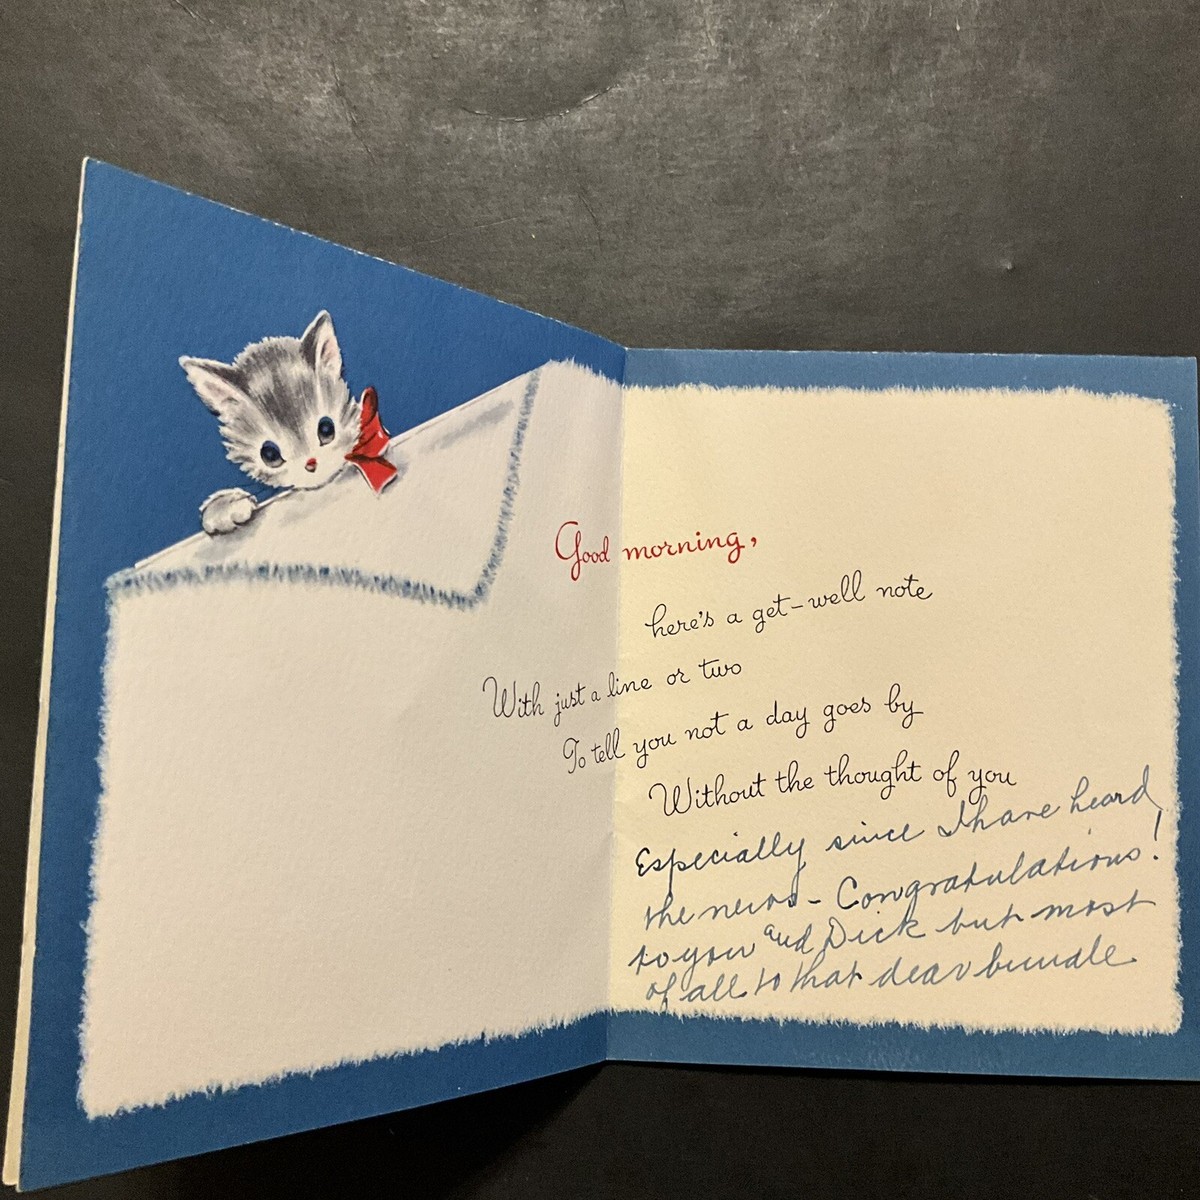 Good morning,
here's a get-well note
With just a line or two
To tell you not a day goes by
Without the thought of you
Especially since I have heard
the news - Congratulations!
to you and Dick but most
of all to that dear bundle